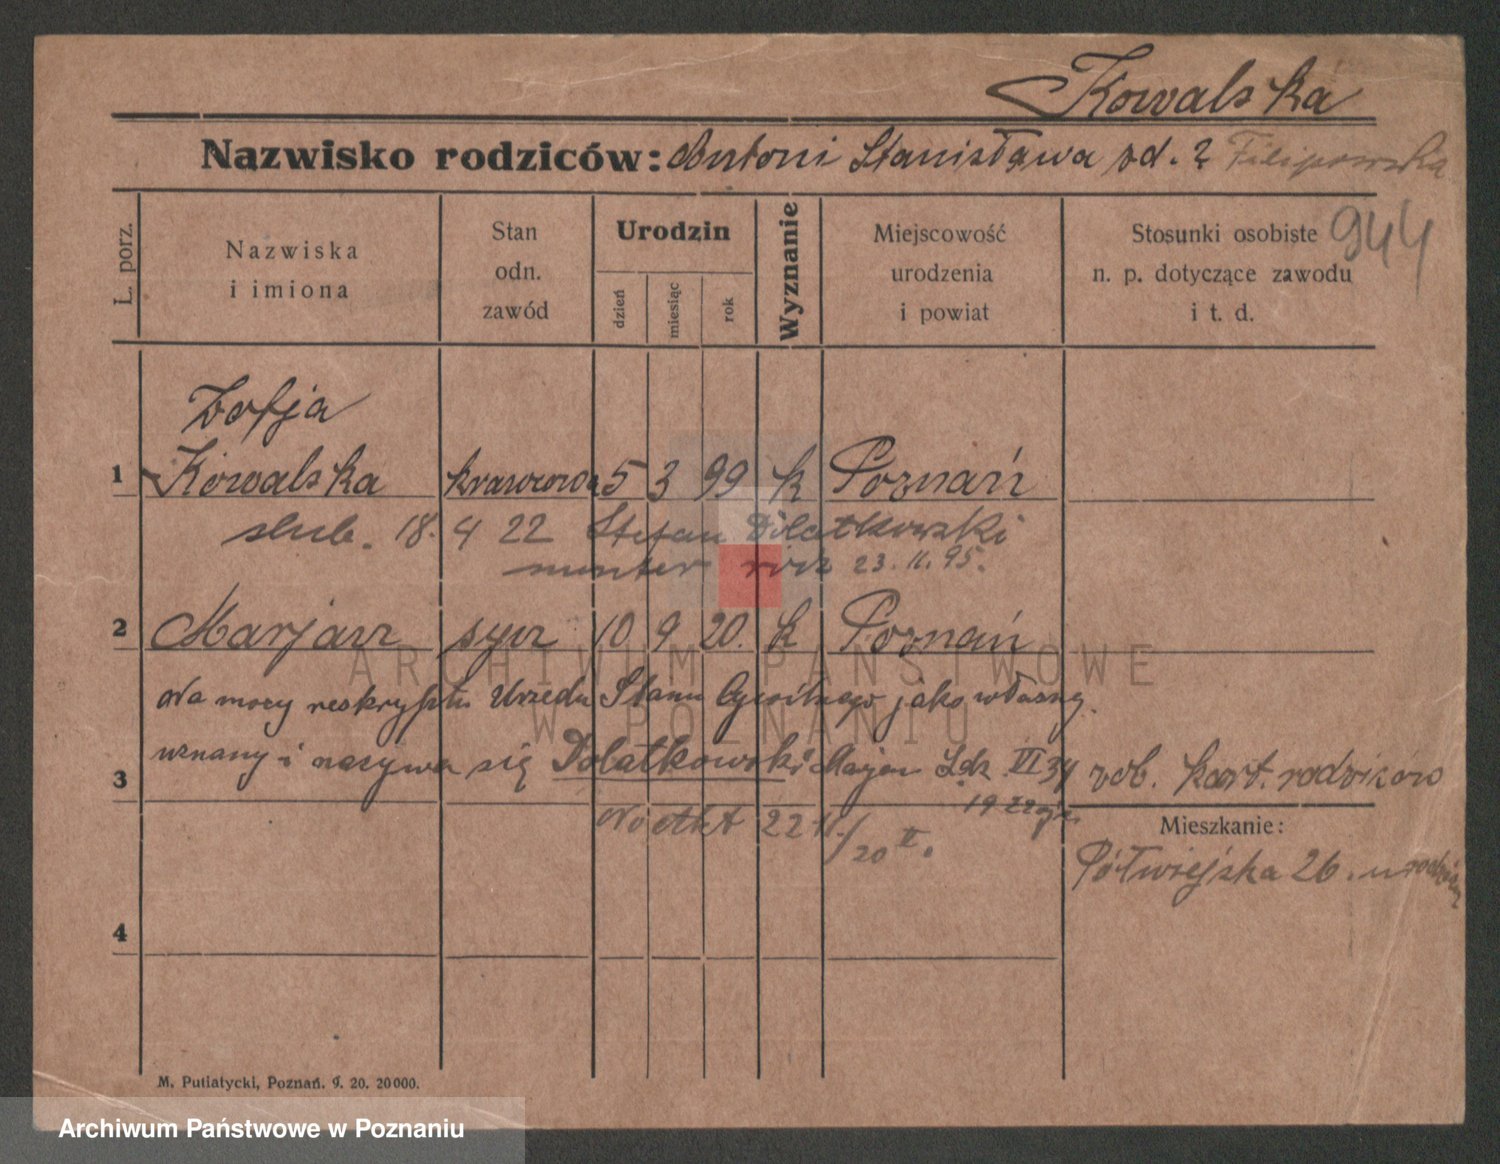 Kowalska
Nazwisko rodziców: Antoni Stanisława zd. ? Filipowska
L. porz.
Nazwiska
i imiona
Stan
odn.
zawód
Urodzin
dzień
miesiąc
rok
Wyznanie
Miejscowość
urodzenia
i powiat
Stosunki osobiste
n. p. dotyczące zawodu
i t. d.
944
Zofja
1 Kowalska krawcowa 5 3 99 k Poznań
slub. 18. 4 22 Stefan Dolatkowski
monter 23. 11. 95.
2 Marjan syn 10 9 20. k Poznań
Na mocy reskryptu Urzędu Stanu Cywilnego jako własny
uznany i nazywa się Dolatkowski Marjan VI 34
3 zob. kart. rodziców
Mieszkanie:
22
20 II.
Półwiejska 26.
4
M. Putiatycki, Poznań. 9. 20. 20000.
ARCHIWUM PAŃSTWOWE
W POZNANIU
Archiwum Państwowe w Poznaniu